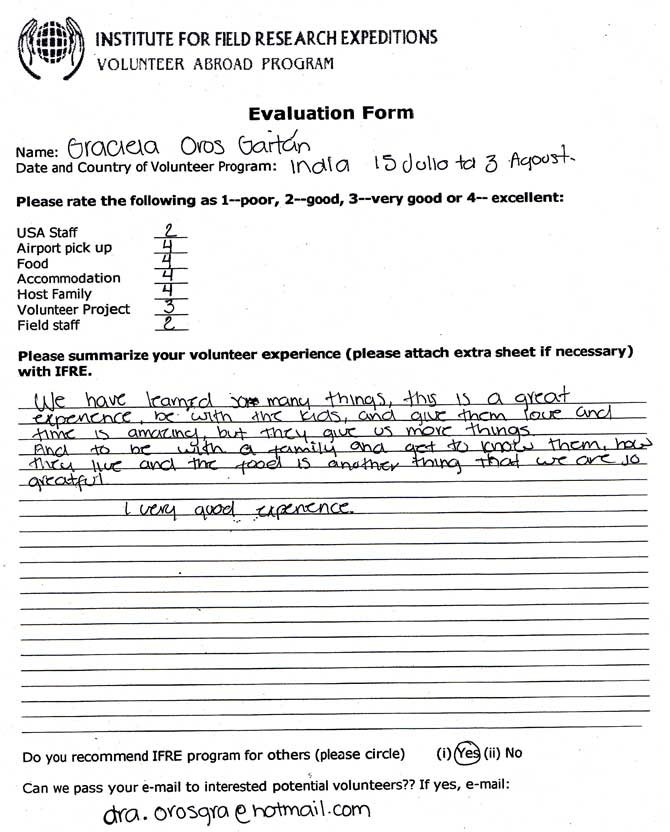 INSTITUTE FOR FIELD RESEARCH EXPEDITIONS
VOLUNTEER ABROAD PROGRAM
Evaluation Form
Name: Graciela Oros Gaitán
Date and Country of Volunteer Program: India 15 Julio to 3 Agoust.
Please rate the following as 1--poor, 2--good, 3--very good or 4-- excellent:
USA Staff 2
Airport pick up 4
Food 4
Accommodation 4
Host Family 4
Volunteer Project 3
Field staff 2
Please summarize your volunteer experience (please attach extra sheet if necessary)
with IFRE.
We have learned many things, this is a great
experience, be with the kids, and give them love and
time is amazing, but they give us more things
And to be with a family and get to know them, how
they live and the food is another thing that we are so
greatful
very good experience.
Do you recommend IFRE program for others (please circle) (i) Yes (ii) No
Can we pass your e-mail to interested potential volunteers?? If yes, e-mail:
dra.orosgra@hotmail.com